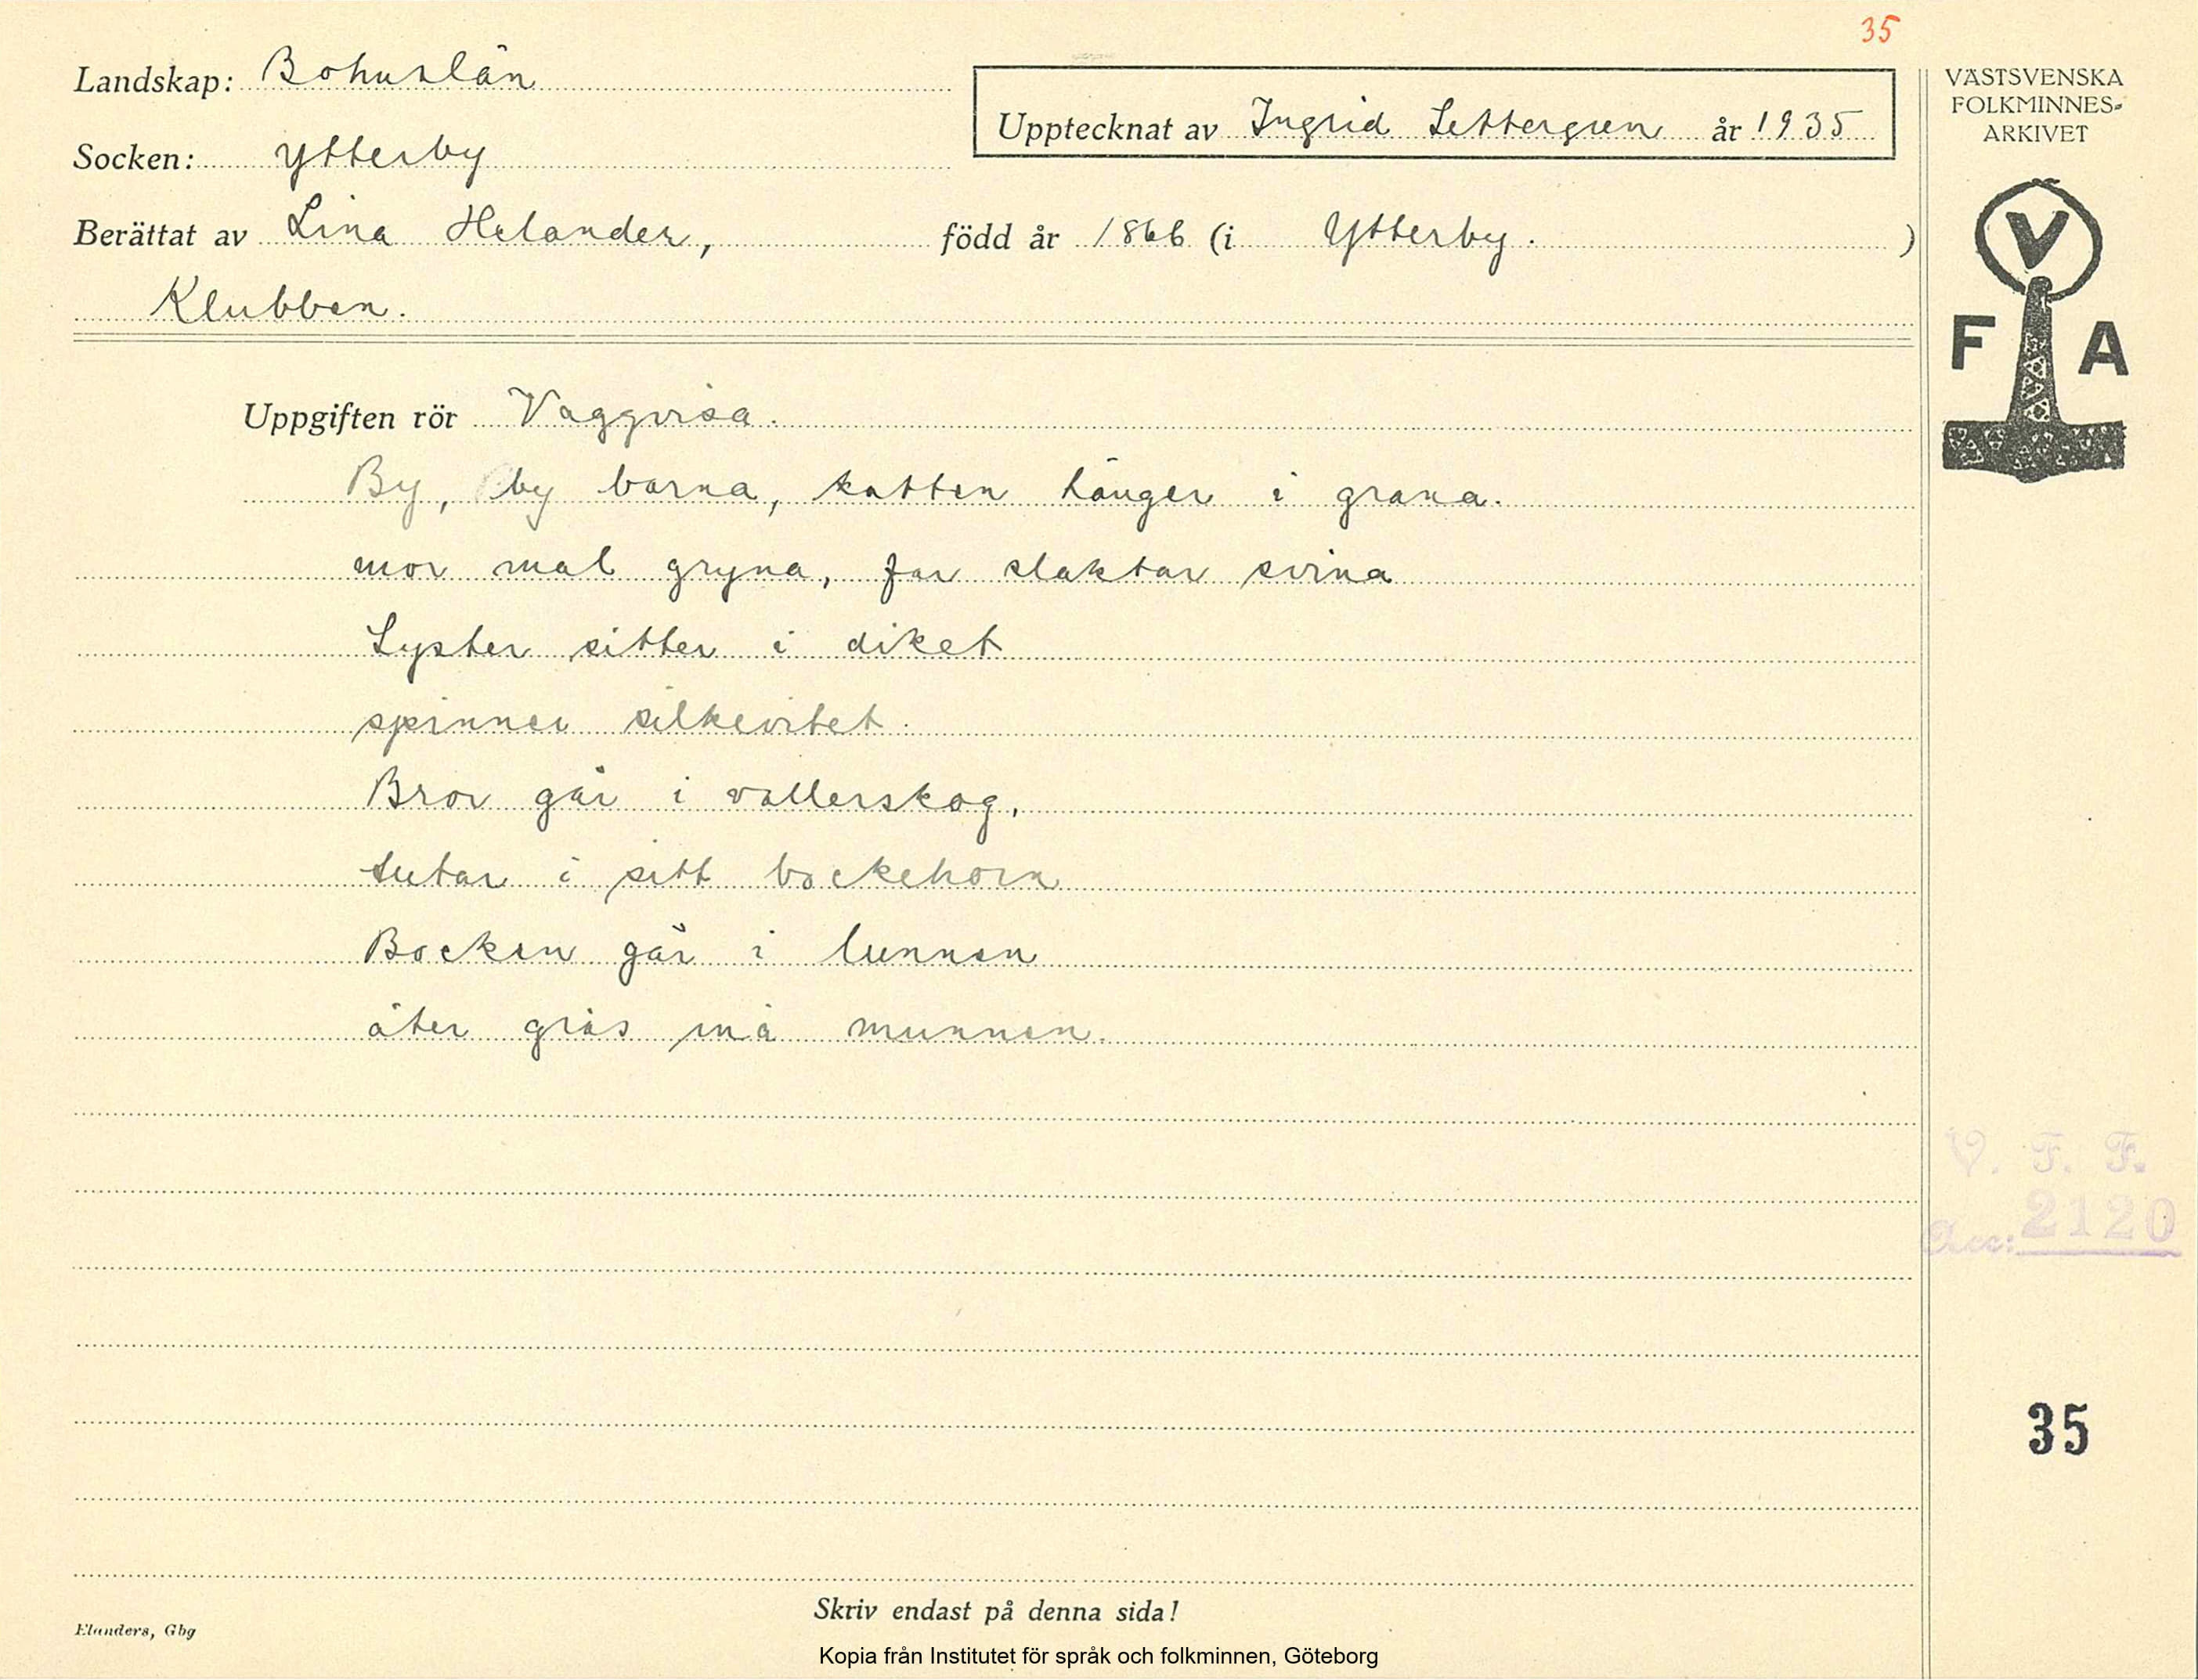 35
Landskap: Bohuslän
VÄSTSVENSKA
FOLKMINNES-
ARKIVET
Upptecknat av Ingrid Settergren år 1935
Socken: Ytterby
Berättat av Lina Helander, född år 1866 (i Ytterby. )
Klubben.
V
F A
Uppgiften rör Vaggvisa.
By, by barna, katten hänger i grana.
mor mal gryna, far slaktar svina
Syster sitter i diket
spinner silkevitet.
Bror går i vallerskog,
tutar i sitt bockehorn
Bocken går i lunnen
äter gräs mä munnen.
V. F. F.
Acc: 2120
35
Skriv endast på denna sida!
Elanders, Gbg
Kopia från Institutet för språk och folkminnen, Göteborg